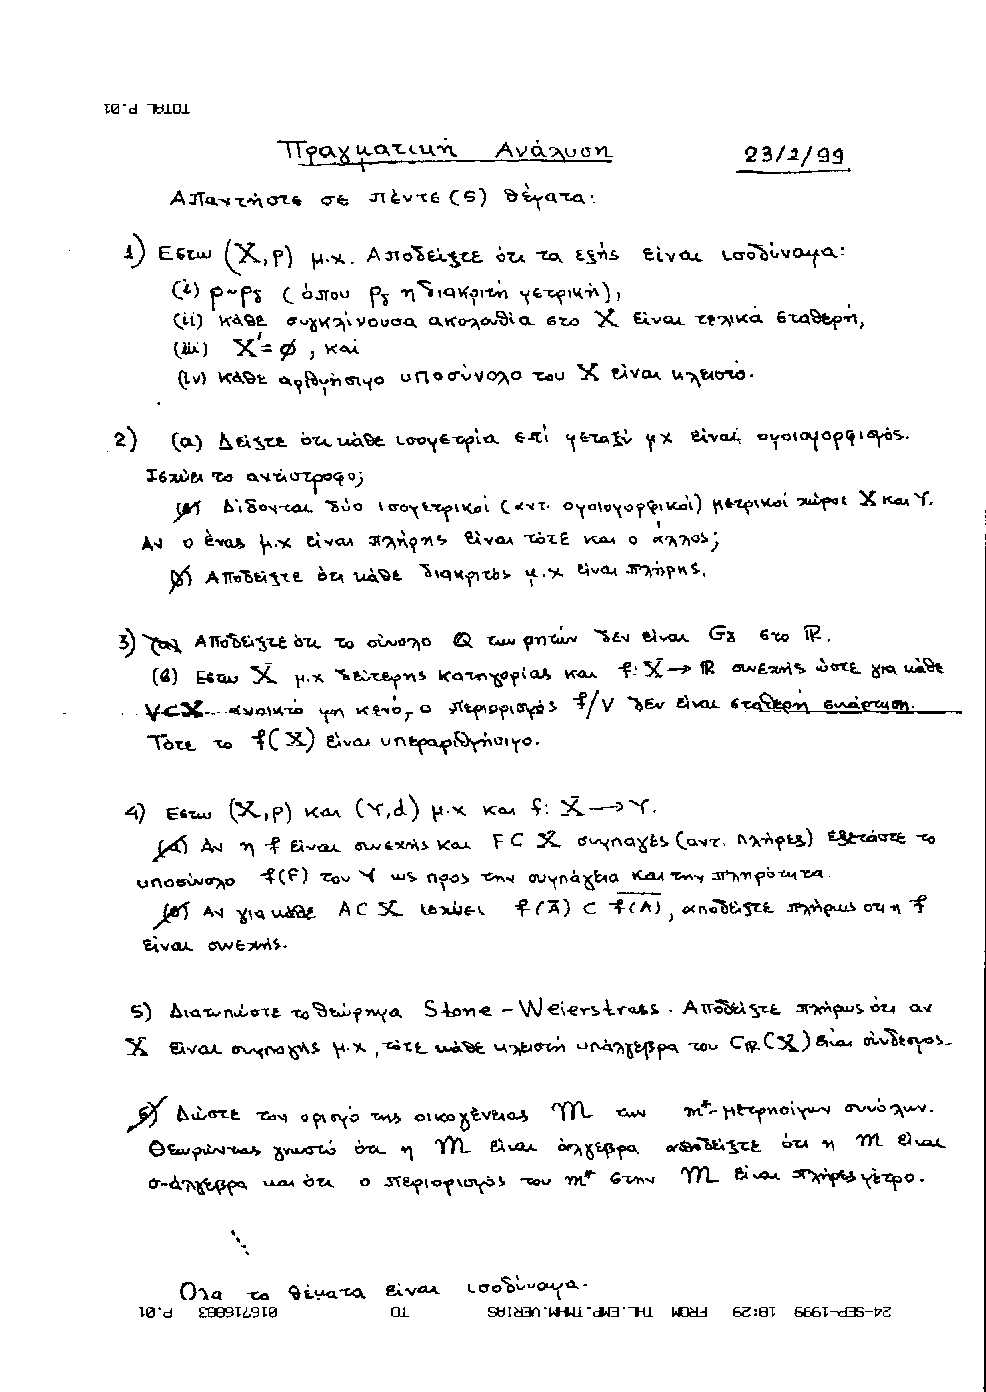 TOTAL P.01
Πραγματική Ανάλυση 23/2/99
Απαντήστε σε πέντε (5) θέματα:
1) Εστω (X, ρ) μ.χ. Αποδείξτε ότι τα εξής είναι ισοδύναμα:
(i) ρ~ρδ (όπου ρδ η διακριτή μετρική),
(ii) κάθε συγκλίνουσα ακολουθία στο X είναι τελικά σταθερή,
(iii) X'=∅, και
(iv) κάθε αριθμήσιμο υποσύνολο του X είναι κλειστό.
2) (α) Δείξτε ότι κάθε ισομετρία επί μεταξύ μχ είναι ομοιομορφισμός.
Ισχύει το αντίστροφο;
(β) Δίδονται δύο ισομετρικοί (αντ. ομοιομορφικοί) μετρικοί χώροι X και Y.
Αν ο ένας μ.χ είναι πλήρης είναι τότε και ο άλλος;
(γ) Αποδείξτε ότι κάθε διακριτός μ.χ είναι πλήρης.
3) (α) Αποδείξτε ότι το σύνολο Q των ρητών δεν είναι Gδ στο ℝ.
(β) Εστω X μ.χ δεύτερης κατηγορίας και f: X → ℝ συνεχής ώστε για κάθε
V⊂X ανοικτό μη κενό, ο περιορισμός f/V δεν είναι σταθερή συνάρτηση.
Τότε το f(X) είναι υπεραριθμήσιμο.
4) Εστω (X, ρ) και (Y, d) μ.χ και f: X → Y.
(α) Αν η f είναι συνεχής και F ⊂ X συμπαγές (αντ. πλήρες) εξετάστε το
υποσύνολο f(F) του Y ως προς την συμπάγεια και την πληρότητα.
(β) Αν για κάθε A ⊂ X ισχύει f(A̅) ⊂ f̅(̅A̅)̅, αποδείξτε πλήρως ότι η f
είναι συνεχής.
5) Διατυπώστε το θεώρημα Stone - Weierstrass. Αποδείξτε πλήρως ότι αν
X είναι συμπαγής μ.χ, τότε κάθε κλειστή υπάλγεβρα του Cℝ(X) είναι σύνδεσμος.
6) Δώστε τον ορισμό της οικογένειας M των m*-μετρησίμων συνόλων.
Θεωρώντας γνωστό ότι η M είναι άλγεβρα αποδείξτε ότι η M είναι
σ-άλγεβρα και ότι ο περιορισμός του m* στην M είναι πλήρες μέτρο.
Ολα τα θέματα είναι ισοδύναμα.
24-SEP-1999 18:29 FROM THL.EMP.TMHM.VERIAS TO 016716883 P.01